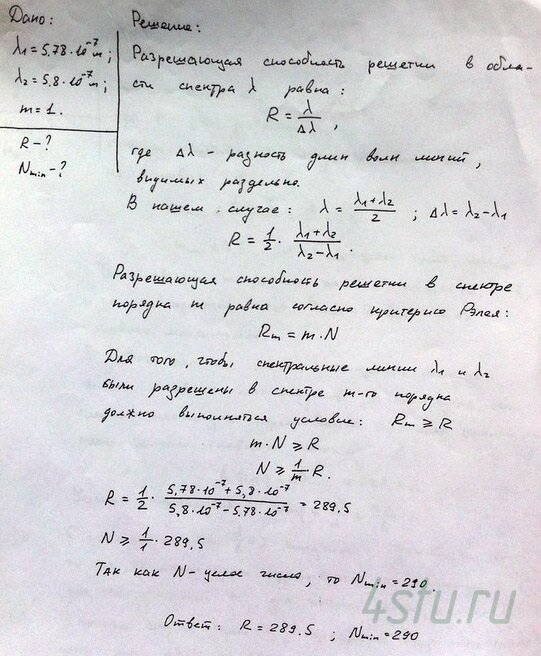 Дано:
λ1 = 5,78·10⁻⁷ м;
λ2 = 5,8·10⁻⁷ м;
m = 1.
R - ?
Nmin - ?
Решение:
Разрешающая способность решетки в обла-
сти спектра λ равна:
R = λ/Δλ,
где Δλ - разность длин волн линий,
видимых раздельно.
В нашем случае: λ = (λ1+λ2)/2 ; Δλ = λ2-λ1
R = 1/2 · (λ1+λ2)/(λ2-λ1).
Разрешающая способность решетки в спектре
порядка m равна согласно критерию Рэлея:
Rm = m·N
Для того, чтобы спектральные линии λ1 и λ2
были разрешены в спектре m-го порядка
должно выполняться условие: Rm ≥ R
m·N ≥ R
N ≥ 1/m · R.
R = 1/2 · (5,78·10⁻⁷+5,8·10⁻⁷)/(5,8·10⁻⁷-5,78·10⁻⁷) = 289,5
N ≥ 1/1 · 289,5
Так как N - целое число, то Nmin = 290.
4stu.ru
Ответ: R = 289.5 ; Nmin = 290